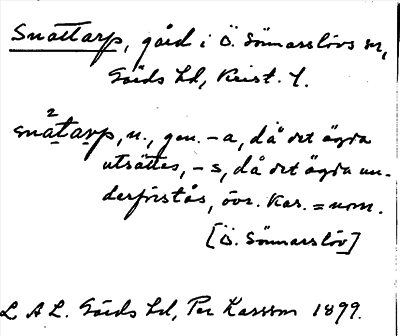 Snattarp, gård i Ö. Sönnarslövs sn,
Gärds hd, Krist. l.
snatarp, n., gen. -a, då det ägda
utsättes, -s, då det ägda un-
derförstås, övr. kas. = nom.
[Ö. Sönnarslöv]
L A L. Gärds hd, Per Karsson 1899.